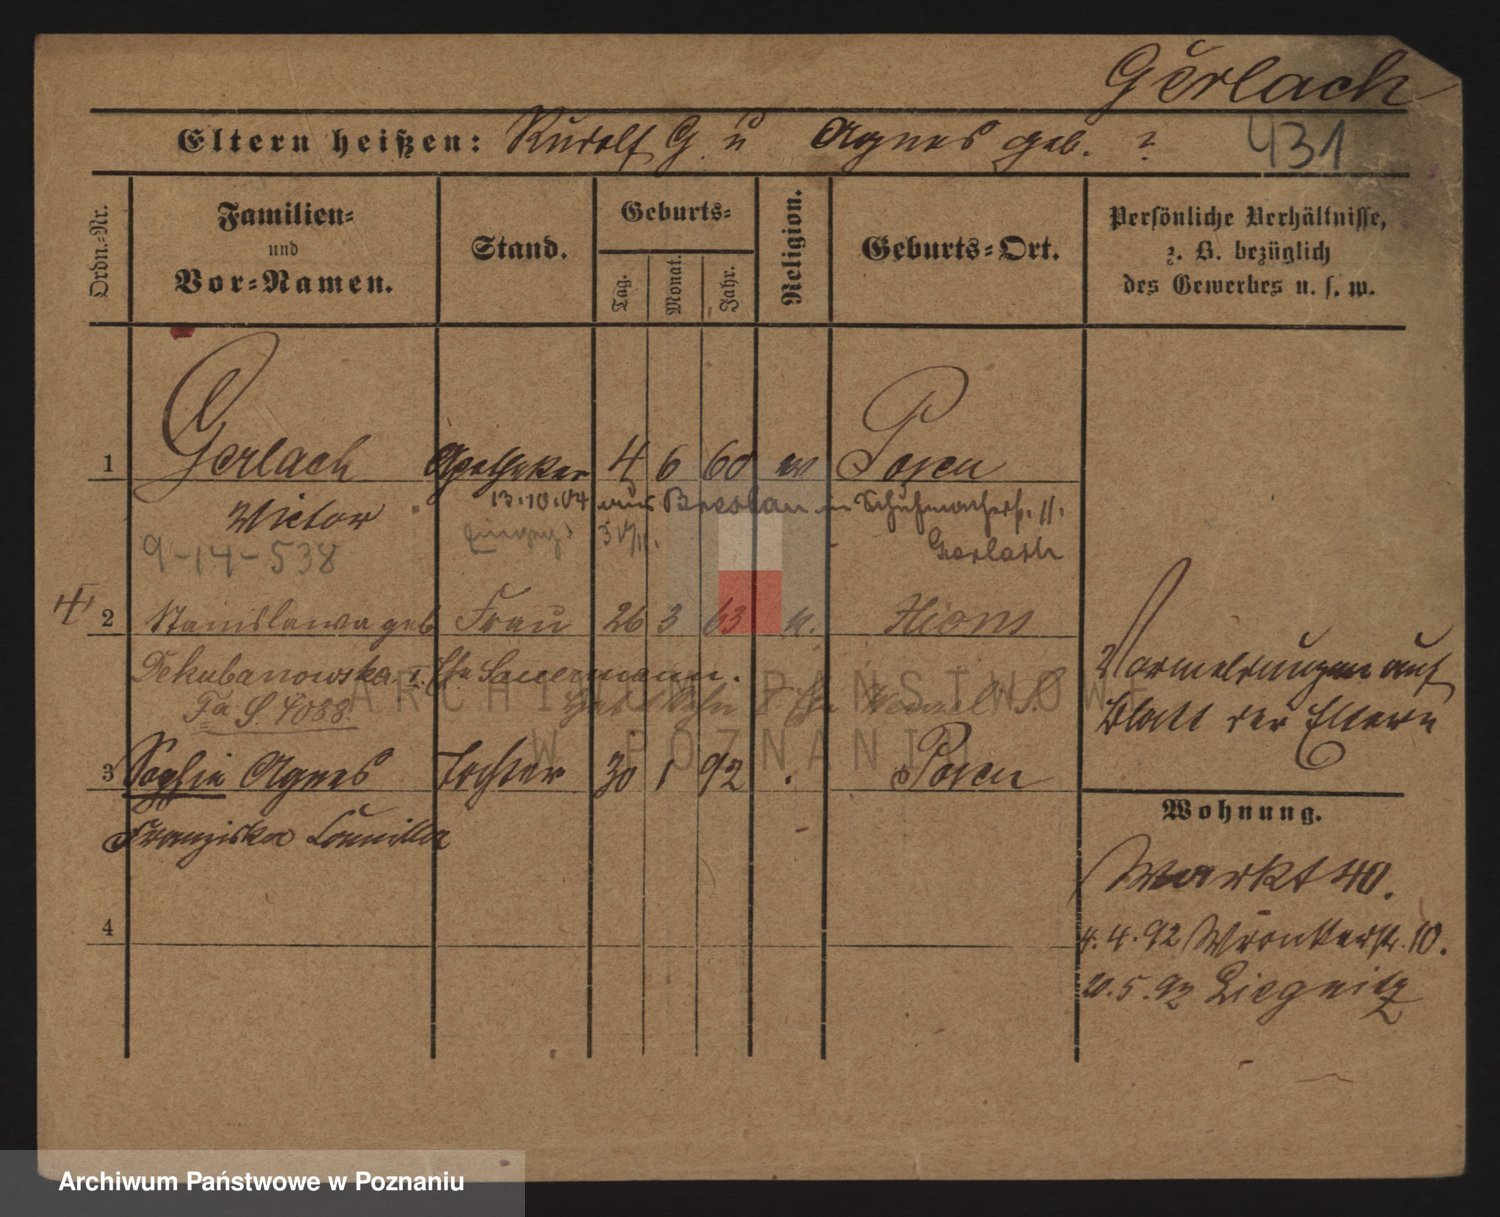 Gerlach
431
Eltern heißen: Rudolf G. u Agnes geb. ?
Ordn.-Nr.
Familien-
und
Vor-Namen.
Stand.
Geburts-
Tag.
Monat.
Jahr.
Religion.
Geburts-Ort.
Persönliche Verhältnisse,
z. B. bezüglich
des Gewerbes u. s. w.
1 Gerlach Apotheker 4 6 60 Posen
13.10.04 aus Breslau in Schuhmacherst. 11.
Victor
Gerlach
9-14-538
2 Stanislawa geb Frau 26 3 63 k. Xions
Dekubanowska I. Ehe Sauermann.
Fa S. 4088.
3 Sophie Agnes Tochter 30 1 92 Posen
Franziska Camilla
4
Vormeldungen auf
Blatt der Eltern
Wohnung.
Markt 40.
4.4.92 Wronkerstr. 10.
20.5.92 Liegnitz
ARCHIWUM PAŃSTWOWE
W POZNANIU
Archiwum Państwowe w Poznaniu